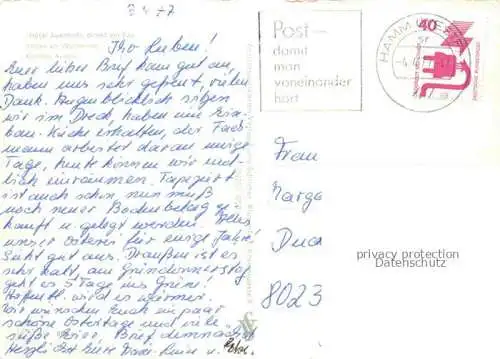 B 4 77
Ihr Lieben!
Euer lieber Brief kam gut an,
haben uns sehr gefreut, vielen
Dank. Augenblicklich sitzen
wir im Dreck, haben eine Ein-
bau-Küche erhalten, der Fach-
mann arbeitet daran einige
Tage, heute können wir end-
lich einräumen. Tapeziert
ist auch schon nun muß
noch neuer Bodenbelag ge-
kauft u. gelegt werden. Alles
unser Osterei für einige Jahre!
Sieht gut aus. Draußen ist es
sehr kalt, am Gründonnerstag
geht es 5 Tage ins Grüne!
Hoffentl. wird es wärmer.
Wir wünschen Euch ein paar
schöne Ostertage und viele
süße Eier. Brief demnächst
Herzlichst Eure
u.
Post-
damit
man
voneinander
hört
HAMM
40
Frau
Marga
8023
privacy protection
Datenschutz